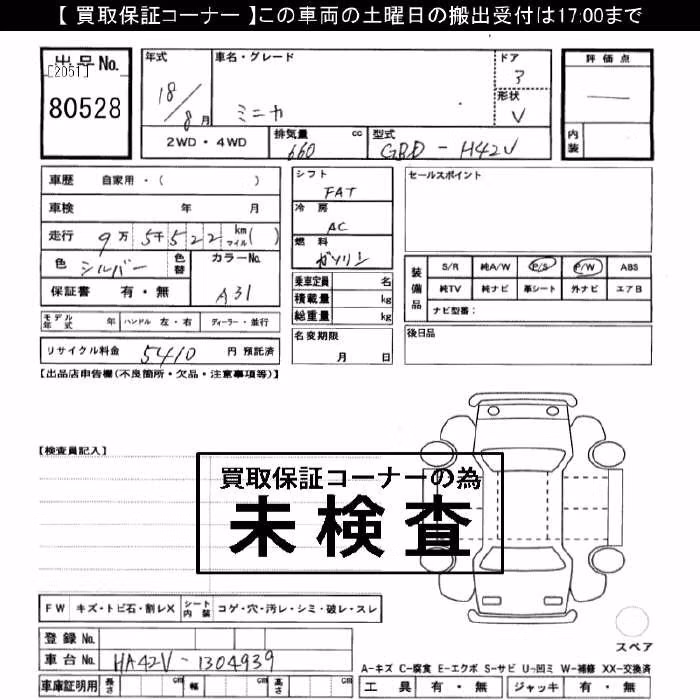 【 買取保証コーナー 】この車両の土曜日の搬出受付は17:00まで
出品No.
[2051]
80528
年式
18/8月
車名・グレード
ミニカ
ドア
3
形状
V
2WD・4WD
排気量 cc
660
型式
GBD - H42V
評価点
—
内装
車歴 自家用・( )
車検 年 月
走行 9万5千522 km マイル( )
色 シルバー 色替
カラーNo.
A31
保証書 有・無
モデル年式 年 ハンドル 左・右 ディーラー・並行
リサイクル料金 5410 円 預託済
シフト
FAT
冷房
AC
燃料
ガソリン
乗車定員 名
積載量 kg
総重量 kg
名変期限
月 日
セールスポイント
装備品
S/R 純A/W P/S P/W ABS
純TV 純ナビ 革シート 外ナビ エアB
ナビ型番：
後日品
【出品店申告欄(不良箇所・欠品・注意事項等)】
【検査員記入】
買取保証コーナーの為
未検査
FW キズ・トビ石・割レX シート内装 コゲ・穴・汚レ・シミ・破レ・スレ
登録No.
車台No. HA42V-1304939
車庫証明用 長さ cm 幅 cm 高さ cm
スペア
A-キズ C-腐食 E-エクボ S-サビ U-凹ミ W-補修 XX-交換済
工具 有・無 ジャッキ 有・無